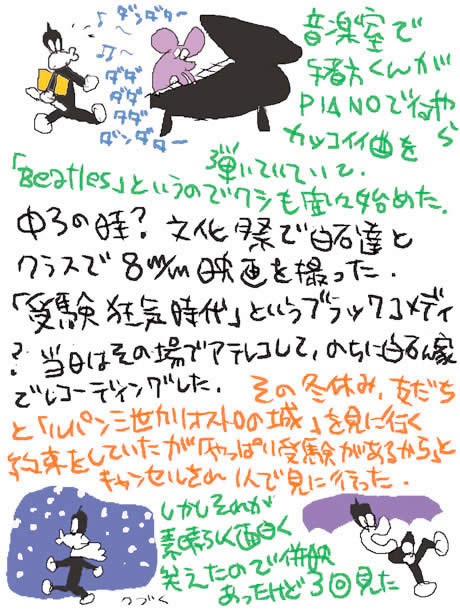 ♪ダンダター
♪〜
ダダ
ダダ
タダ
ダンダター
音楽室で
緒方くんが
PIANOで何やら
カッコイイ曲を
弾いていて、
「Beatles」というのでワシも
始めた.
中3の時? 文化祭で白石達と
クラスで8m/m映画を撮った.
「受験狂気時代」というブラックコメディ
? 当日はその場でアテレコして,のちに白石家
でレコーディングした. その冬休み,友だち
と「ルパン三世カリオストロの城」を見に行く
約束をしていたが「やっぱり受験があるから」と
キャンセルされ1人で見に行った.
しかしそれが
素晴らしく面白く
笑えたので併映
あったけど3回見た
つづく